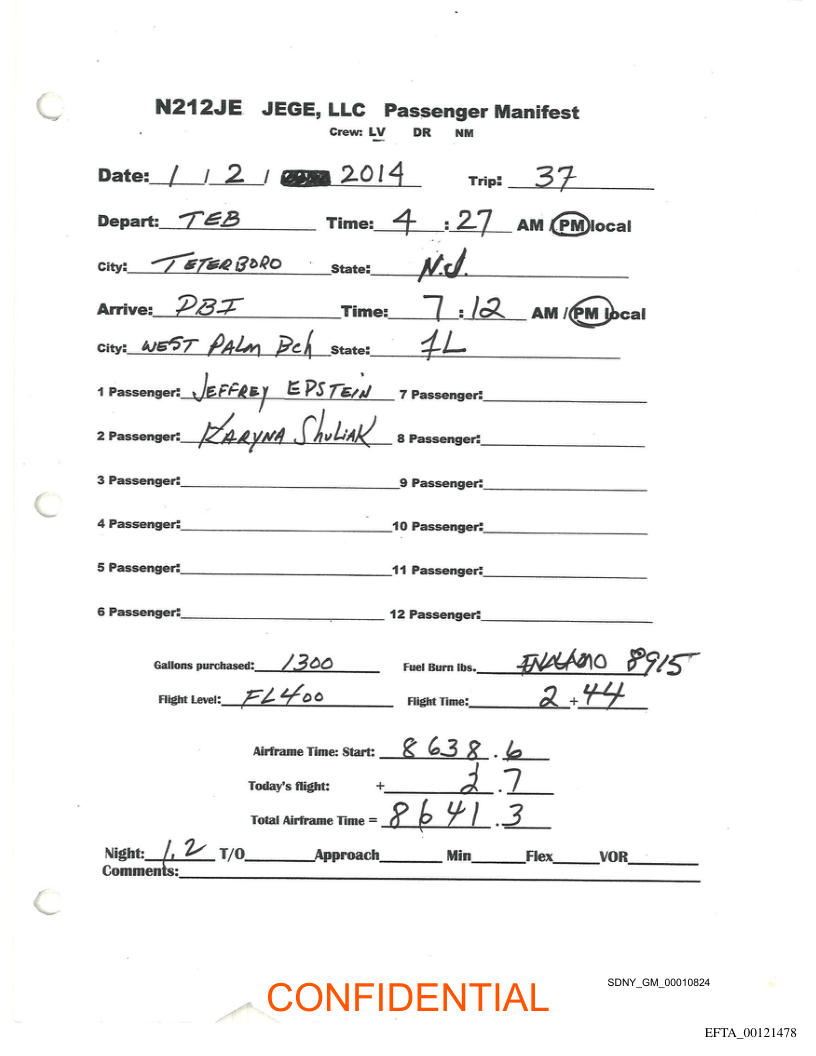 N212JE JEGE, LLC Passenger Manifest
Crew: LV DR NM
Date: 1 / 2 / 2014 Trip: 37
Depart: TEB Time: 4 : 27 AM / PM local
City: TETERBORO State: N.J.
Arrive: PBI Time: 7 : 12 AM / PM local
City: WEST PALM Bch State: FL
1 Passenger: JEFFREY EPSTEIN 7 Passenger:
2 Passenger: KARYNA ShuLiAK 8 Passenger:
3 Passenger: 9 Passenger:
4 Passenger: 10 Passenger:
5 Passenger: 11 Passenger:
6 Passenger: 12 Passenger:
Gallons purchased: 1300 Fuel Burn lbs. 8915
Flight Level: FL400 Flight Time: 2 + 44
Airframe Time: Start: 8638 . 6
Today's flight: + 2 . 7
Total Airframe Time = 8641 . 3
Night: 1.2 T/O Approach Min Flex VOR
Comments:
SDNY_GM_00010824
CONFIDENTIAL
EFTA_00121478